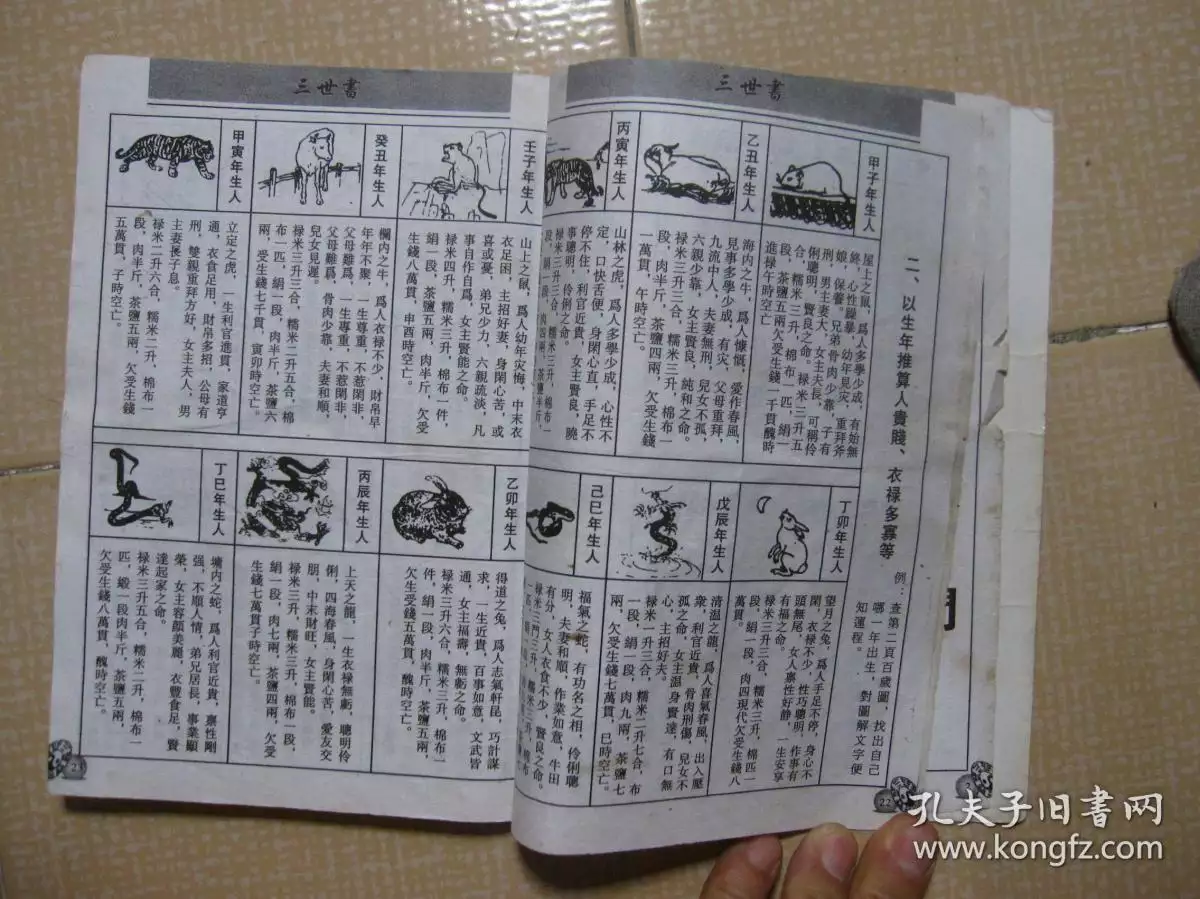 三世書
二、以生年推算人貴賤、衣禄多寡等
例：查第二頁百歲圖，找出自己
哪一年出生，對圖解文字便
知運程。
甲子年生人
屋土之鼠，爲人多學少成，有始無
終，心性躁暴，幼年見灾，重拜爹
娘，保養。兄弟骨肉少靠，子有
刑，男主妻大，女主夫長，可稱伶
俐聰明，賢良之命。禄米三升五
合，糯米三升，棉布一匹，絹一
段，茶鹽五兩欠受生錢一千貫醜時
進禄午時空亡
乙丑年生人
海内之牛，爲人慷慨，愛作春風，
見事多學少成，有灾，父母重拜，
九流中人，夫妻無刑，兒女不孤，
六親少靠，女主賢良，純和之命。
禄米三升三合，糯米三升，棉布一
段，肉半斤，茶鹽四兩，欠受生錢
一萬貫，午時空亡。
丙寅年生人
山林之虎，爲人多學少成，心性不
定，口快舌便，身閑心直，手足不
停不住，利官近貴，女主賢良，曉
事聰明，伶俐之命。
禄米三升三合，糯米三升，棉布一
段，絹一段，肉四兩，茶鹽半斤，
丁卯年生人
望月之兔，爲人手足不停，身心不
閑，衣禄不少，性巧聰明，作事有
頭無尾，女人禀性好静，一生安享
有福之命。
禄米三升三合，糯米三升，棉匹一
段，絹一段，肉四現代欠受生錢八
萬貫。
戊辰年生人
清温之龍，爲人喜氣春風，出入壓
衆，利官近貴，骨肉刑傷，兒女不
孤之命，女主温身賢達，有口無
心，主招好夫。
禄米一升三合，糯米二升七合，布
一段，絹一段，肉九兩，茶鹽七
兩，欠受生錢七萬貫，巳時空亡。
己巳年生人
福氣之蛇，有功名之相，伶俐聰
明，夫妻和順，作業如意，牛田
有分，女人衣食不少，賢良之命。
22
三世書
壬子年生人
山上之鼠，爲人幼年灾悔，中末衣
衣足困，主招好妻，身閑心苦，或
喜或憂，弟兄少力，六親疏淡，凡
事自作自爲，女主賢能之命。
禄米四升，糯米三升，棉布一件，
絹一段，茶鹽五兩，肉半斤，欠受
生錢一萬貫，申酉時空亡。
癸丑年生人
欄内之牛，爲人衣禄不少，財帛早
年年不聚，一生尊重，不惹閑非，
父母雖爲，一生專重，不惹閑非，
父母雖爲，骨肉少靠，夫妻和順，
兒女見遲。
禄米三升三合，糯米二升五合，棉
布一匹，絹一段，肉半斤，茶鹽六
兩，受生錢七千貫，寅卯時空亡。
甲寅年生人
立定之虎，一生利官進貫，家道亨
通，衣食足用，財帛多招，公母有
刑，雙親重拜方好，女主夫人，男
主妻長子息。
禄米二升六合，糯米二升，棉布一
段，肉半斤，茶鹽五兩，欠受生錢
五萬貫，子時空亡。
乙卯年生人
得道之兔，爲人志氣軒昆，巧計謀
求，一生近貴，百事如意，文武皆
通，女主福壽，無虧之命。
禄米三升六合，糯米三升，棉布一
件，絹一段，肉半斤，茶鹽五兩，
欠生受錢五萬貫，醜時空亡。
丙辰年生人
上天之龍，一生衣禄無虧，聰明伶
俐，四海春風，身閑心苦，愛友交
朋，中末財旺，女主賢能。
禄米三升，糯米三升，棉布一段，
絹一段，肉七兩，茶鹽四兩，欠受
生錢七萬貫子時空亡。
丁巳年生人
墉内之蛇，爲人利官近貴，禀性剛
强，不順人情，弟兄居長，事業顯
榮，女主容顔美麗，衣豐食足，賢
達起家之命。
禄米三升五合，糯米二升，棉布一
匹，緞一段肉半斤，茶鹽五兩，
欠受生錢八萬貫，醜時空亡。
孔夫子旧書网
www.kongfz.com